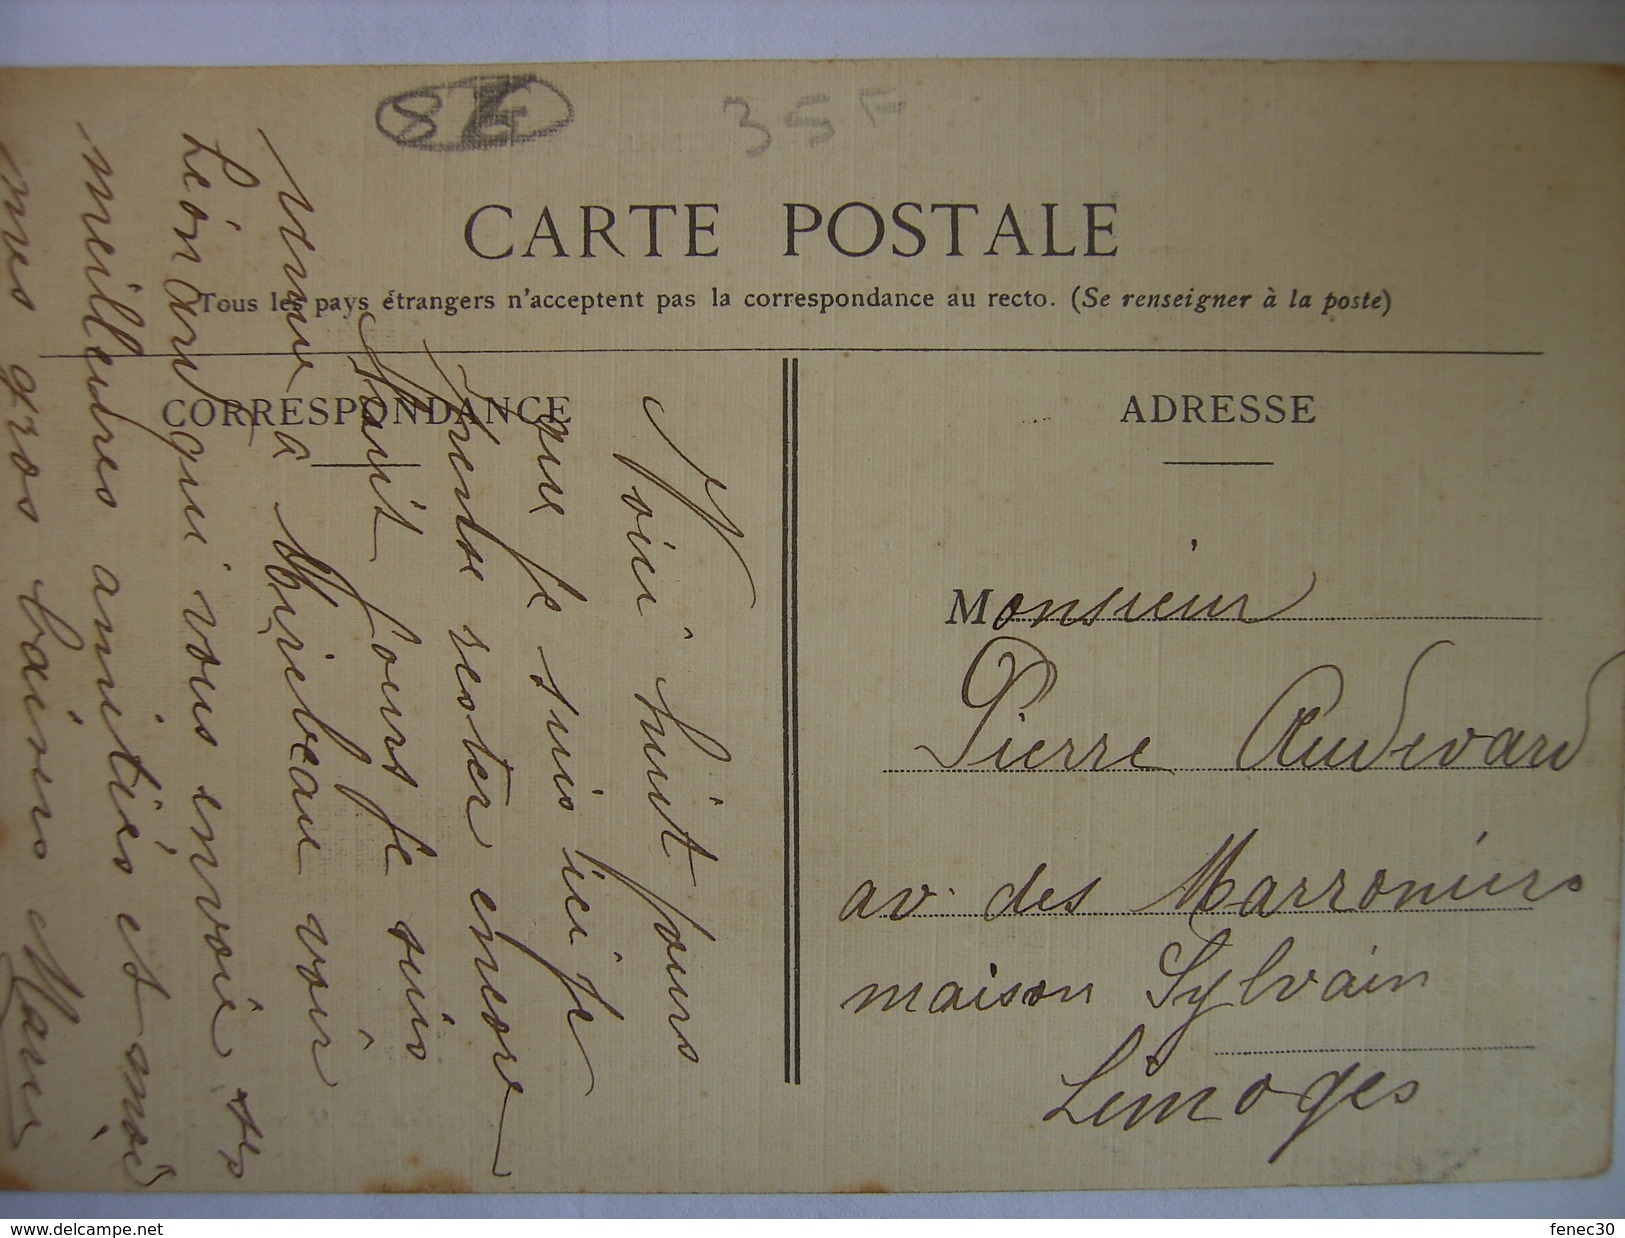 86
35F
CARTE POSTALE
Tous les pays étrangers n'acceptent pas la correspondance au recto. (Se renseigner à la poste)
CORRESPONDANCE
Voici huit jours
que je suis ici je
pense rester encore
huit jours je suis
venue a Mirebeau voir
Léonard qui vous envoie ses
meilleures amitiés et moi
mes gros baisers Marie
ADRESSE
Monsieur
Pierre Audevard
av. des Marroniers
maison Sylvain
Limoges
www.delcampe.net
fenec30